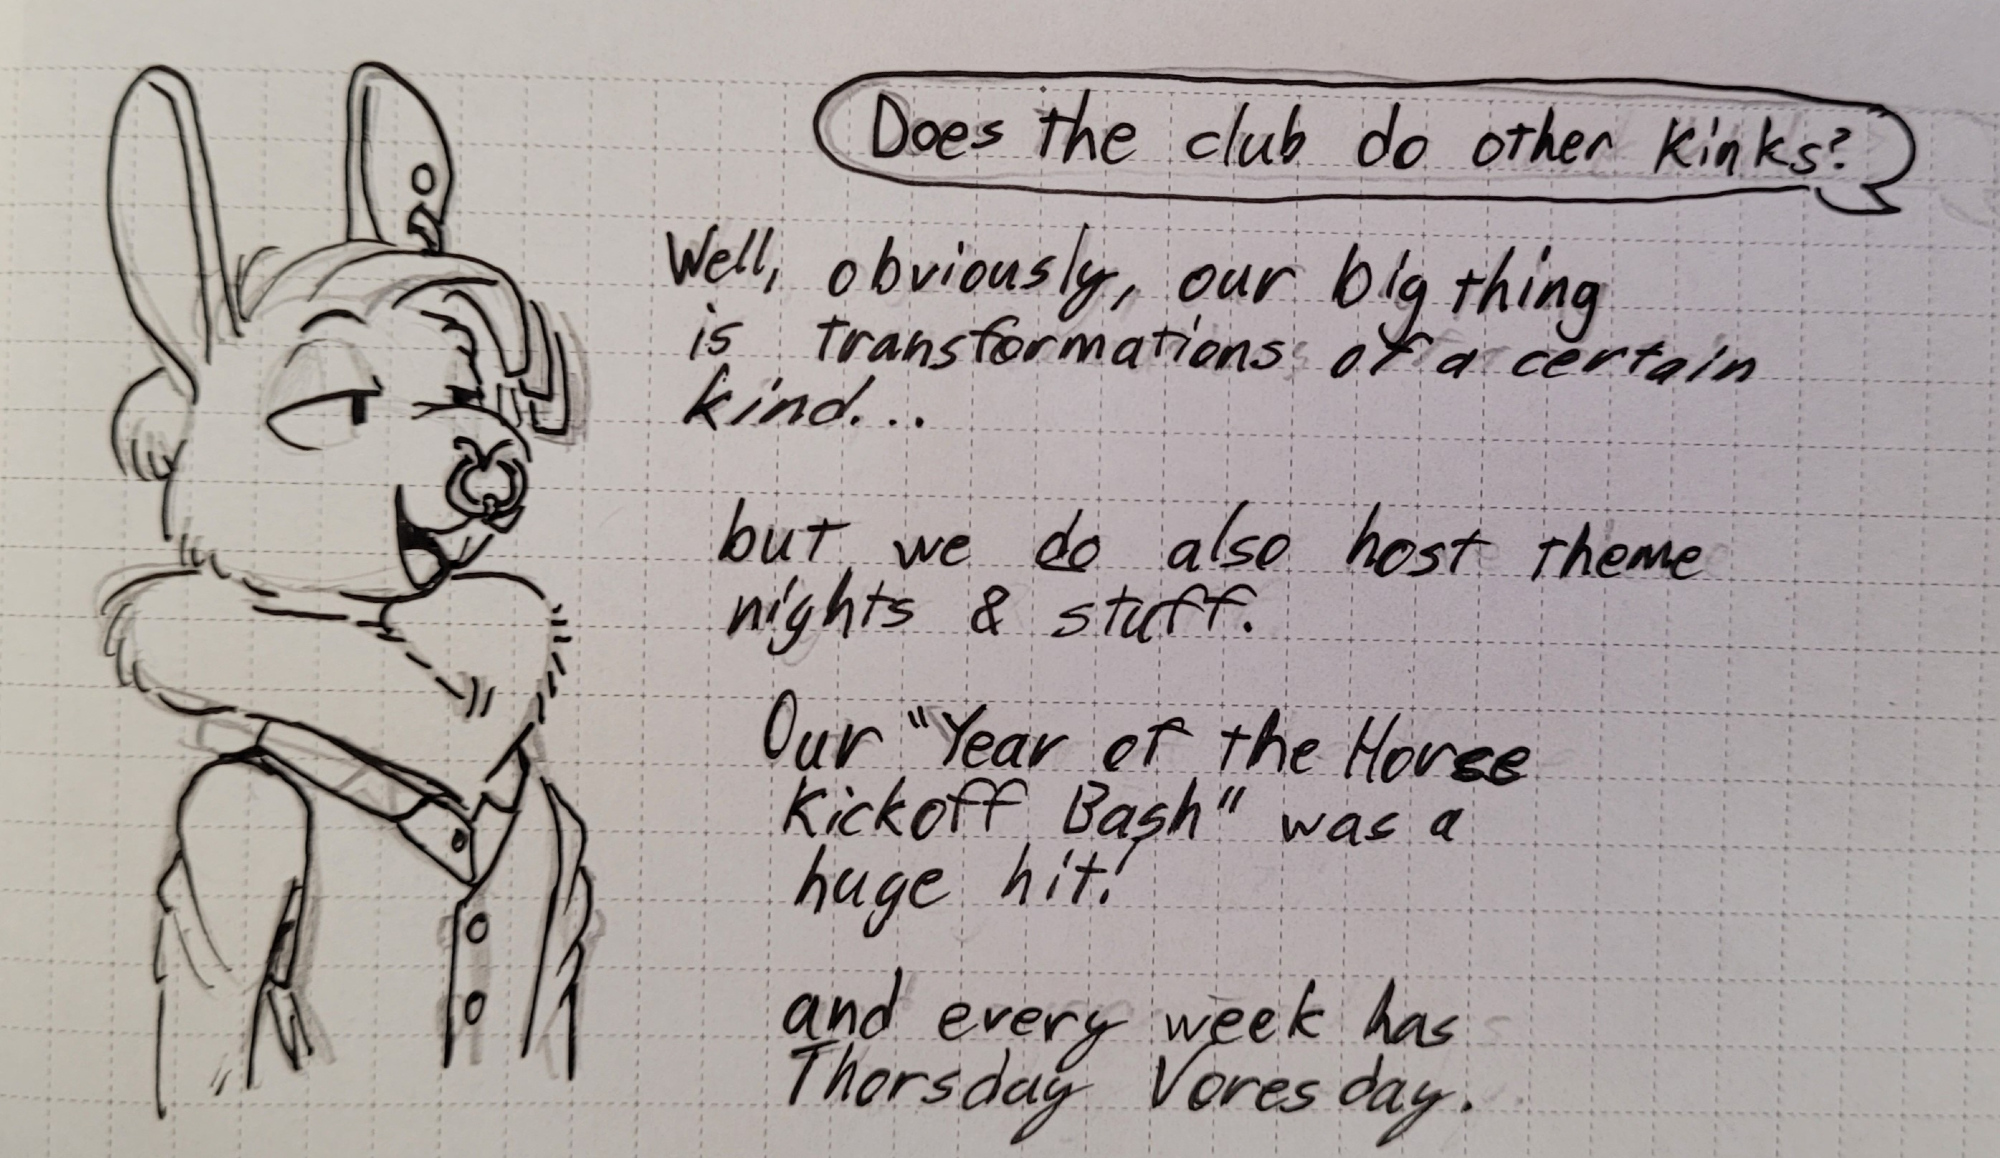 Does the club do other kinks?
Well, obviously, our big thing
is transformations of a certain
kind...
but we do also host theme
nights & stuff.
Our "Year of the Horse
Kickoff Bash" was a
huge hit!
and every week has
Thorsday Voresday.